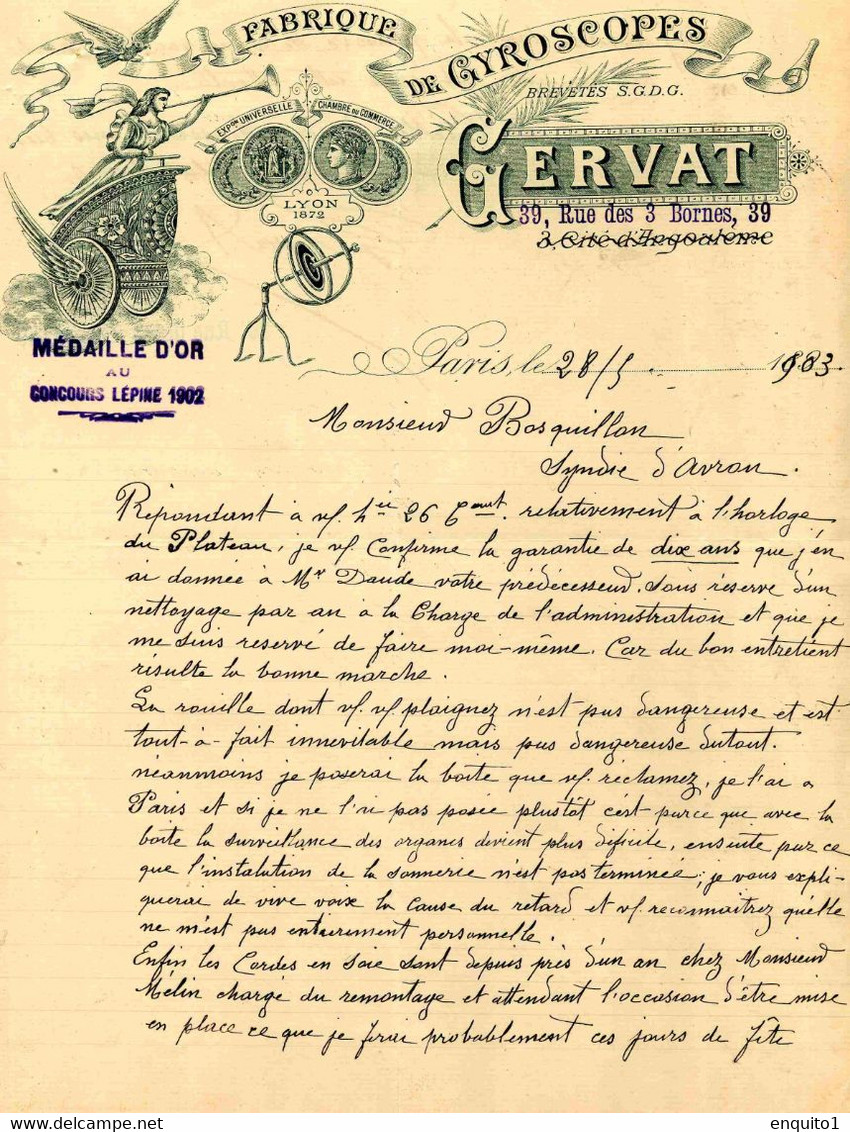 FABRIQUE
DE GYROSCOPES
BREVETÉS S.G.D.G.
EXPON UNIVERSELLE
CHAMBRE DU COMMERCE
LYON
1872
GERVAT
39, Rue des 3 Bornes, 39
3, Cité d'Angoulême
MÉDAILLE D'OR
AU
CONCOURS LÉPINE 1902
Paris, le 28/5 1903.
Monsieur Bosquillon
Syndic d'Avron.
Répondant à vf. hrée 26 Court. relativement à l'horloge
du Plateau, je vf. Confirme la garantie de dix ans que j'en
ai donnée à Mr Daude votre prédécesseur. Sous réserve d'un
nettoyage par an à la Charge de l'administration et que je
me suis reservé de faire moi-même. Car du bon entretient
résulte la bonne marche.
La rouille dont vf. vf. plaignez n'est pas dangereuse et est
tout-à-fait innevitable mais pas dangereuse dutout.
néanmoins je poserai la boite que vf. réclamez, je l'ai a
Paris et si je ne l'ai pas posée plustôt c'est parce que avec la
boite la surveillance des organes devient plus dificile, ensuite par ce
que l'instalution de la sonnerie n'est pas terminée; je vous expli-
querai de vive voix la cause du retard et vf. reconnaitrez qu'elle
ne m'est pas entièrement personnelle.
Enfin les Cordes en soie sont depuis près d'un an chez Monsieur
Mélin chargé du remontage et attendant l'occasion d'être mise
en place ce que je ferai probablement ces jours de fête
enquito1